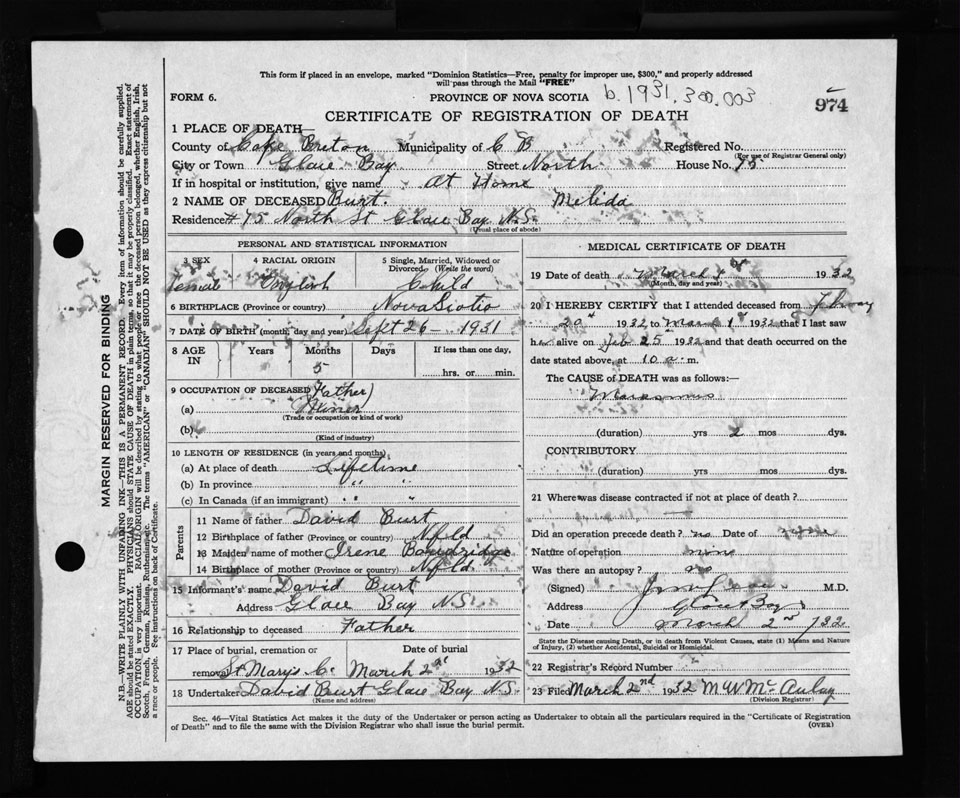 This form if placed in an envelope, marked "Dominion Statistics—Free, penalty for improper use, $300," and properly addressed
will pass through the Mail "FREE"
FORM 6.
PROVINCE OF NOVA SCOTIA
b. 1931. 300.003
974
CERTIFICATE OF REGISTRATION OF DEATH
1 PLACE OF DEATH—
County of Cape Breton Municipality of C B Registered No.
(For use of Registrar General only)
City or Town Glace Bay Street North House No. 75
If in hospital or institution, give name At Home
2 NAME OF DECEASED Burt. Melida
Residence # 75 North St Glace Bay N.S.
(Usual place of abode)
PERSONAL AND STATISTICAL INFORMATION
3 SEX 4 RACIAL ORIGIN 5 Single, Married, Widowed or
Divorced (Write the word)
Female English Child
6 BIRTHPLACE (Province or country) Nova Scotia
7 DATE OF BIRTH (month, day and year) Sept 26 - 1931
8 AGE IN Years Months Days If less than one day,
5
hrs. or min.
9 OCCUPATION OF DECEASED (Father)
(a) Miner
(Trade or occupation or kind of work)
(b)
(Kind of industry)
10 LENGTH OF RESIDENCE (in years and months)
(a) At place of death Lifetime
(b) In province " "
(c) In Canada (if an immigrant) " "
Parents
11 Name of father David Burt
12 Birthplace of father (Province or country) Nfld
13 Maiden name of mother Irene
14 Birthplace of mother (Province or country) Nfld.
15 Informant's name David Burt
Address Glace Bay N.S.
16 Relationship to deceased Father
17 Place of burial, cremation or Date of burial
removal St Marys C. March 2nd 1932
18 Undertaker David Burt Glace Bay N.S.
(Name and address)
MEDICAL CERTIFICATE OF DEATH
19 Date of death March 1st 1932
(Month, day and year)
20 I HEREBY CERTIFY that I attended deceased from
20th 1932 to March 1st 1932 that I last saw
her alive on Feb 25 1932 and that death occurred on the
date stated above, at 10 a.m.
The CAUSE of DEATH was as follows:—
Marasmus
(duration) yrs 2 mos dys.
CONTRIBUTORY
(duration) yrs mos dys.
21 Where was disease contracted if not at place of death?
—
Did an operation precede death? no Date of
Nature of operation none
Was there an autopsy? no
(Signed) M.D.
Address Glace Bay
Date March 2nd 1932
State the Disease causing Death, or in death from Violent Causes, state (1) Means and Nature
of Injury, (2) whether Accidental, Suicidal or Homicidal.
22 Registrar's Record Number
23 Filed March 2nd 1932 M W McAulay
(Division Registrar)
Sec. 46—Vital Statistics Act makes it the duty of the Undertaker or person acting as Undertaker to obtain all the particulars required in the "Certificate of Registration
of Death" and to file the same with the Division Registrar who shall issue the burial permit.
(OVER)
MARGIN RESERVED FOR BINDING
N.B.—WRITE PLAINLY WITH UNFADING INK—THIS IS A PERMANENT RECORD. Every item of information should be carefully supplied.
AGE should be stated EXACTLY. PHYSICIANS should STATE CAUSE OF DEATH in plain terms, so that it may be properly classified. Exact statement of
OCCUPATION is very important. RACIAL ORIGIN will be described by stating to what people or race the deceased person belonged, whether English, Irish,
Scotch, French, German, Russian, Ruthenian, etc. The terms "AMERICAN" or "CANADIAN" SHOULD NOT BE USED as they express citizenship but not
a race or people. See instructions on back of Certificate.